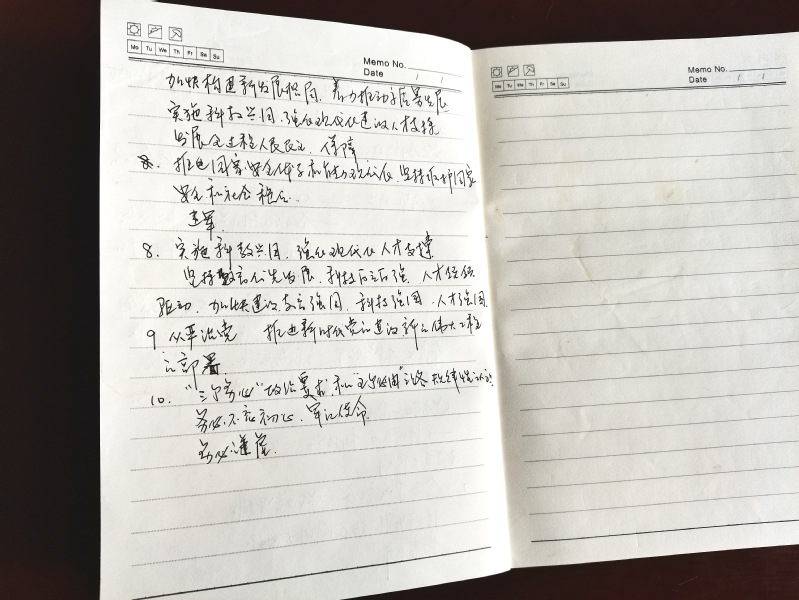 Mo Tu We Th Fr Sa Su
Memo No.
Date / /
加快构建新发展格局，着力推动高质量发展
实施科教兴国，强化现代化建设人才支撑
发展全过程人民民主，保障
推进国家安全体系和能力现代化，坚持维护国家
安全和社会稳定.
建军.
8. 实施科教兴国，强化现代化人才支撑
坚持教育优先发展，科技自立自强，人才引领
驱动，加快建设教育强国，科技强国，人才强国
9 从严治党 推进新时代党的建设新的伟大工程
部署.
10. "三个务必"政治要求，和
务必不忘初心、牢记使命
务必谦虚.
Mo Tu We Th Fr Sa Su
Memo No.
Date / /